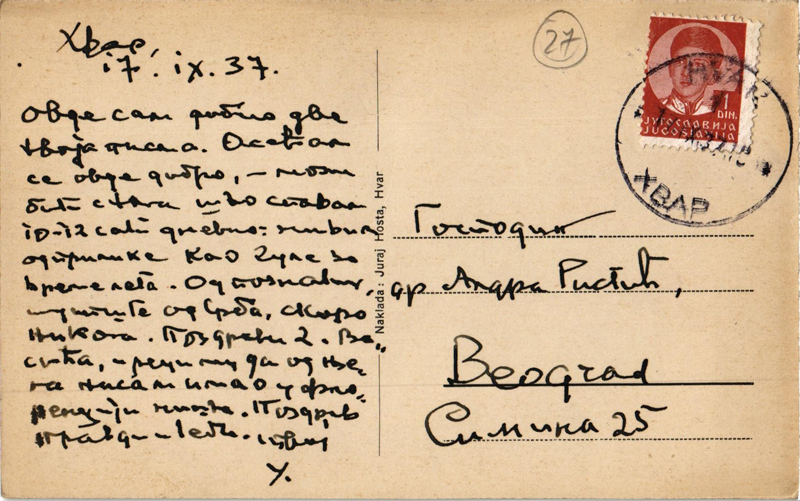 Хвар,
17. IX. 37.
Овде сам добио две
твоја писма. Осећам
се овде добро, – можда
бити с тога што спавам
10-12 сати дневно.
одприлике као Гуле за
време лета. Од познатих,
од Срба, скоро
никога. Поздрави г. Ва-
сића, и реци му да од ње-
га нисам имао у
ништа. Поздрав
и теби. твој
У.
27
HVAR
1 DIN.
ЈУГОСЛАВИЈА
JUGOSLAVIJA
ХВАР
Naklada: Juraj Hosta, Hvar
Господин
др Андра Ристић,
Beograd
Симина 25